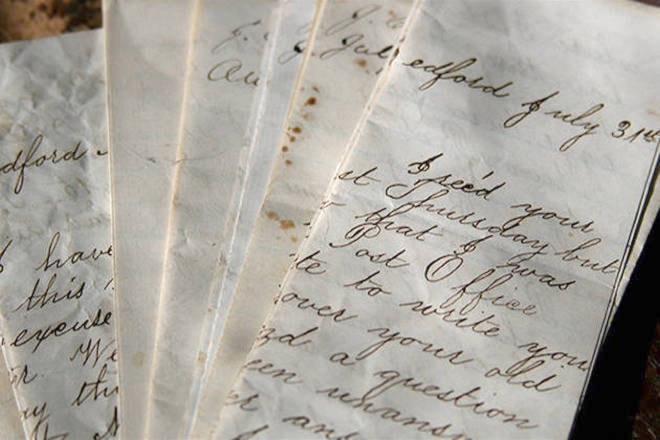 dford
I have
this
excuse
r. We
y th
Au
J. Jul
edford July 31st
I rec'd your
st Thursday but
that I was
Post Office
te to write you
over your old
d a question
een unans
er an